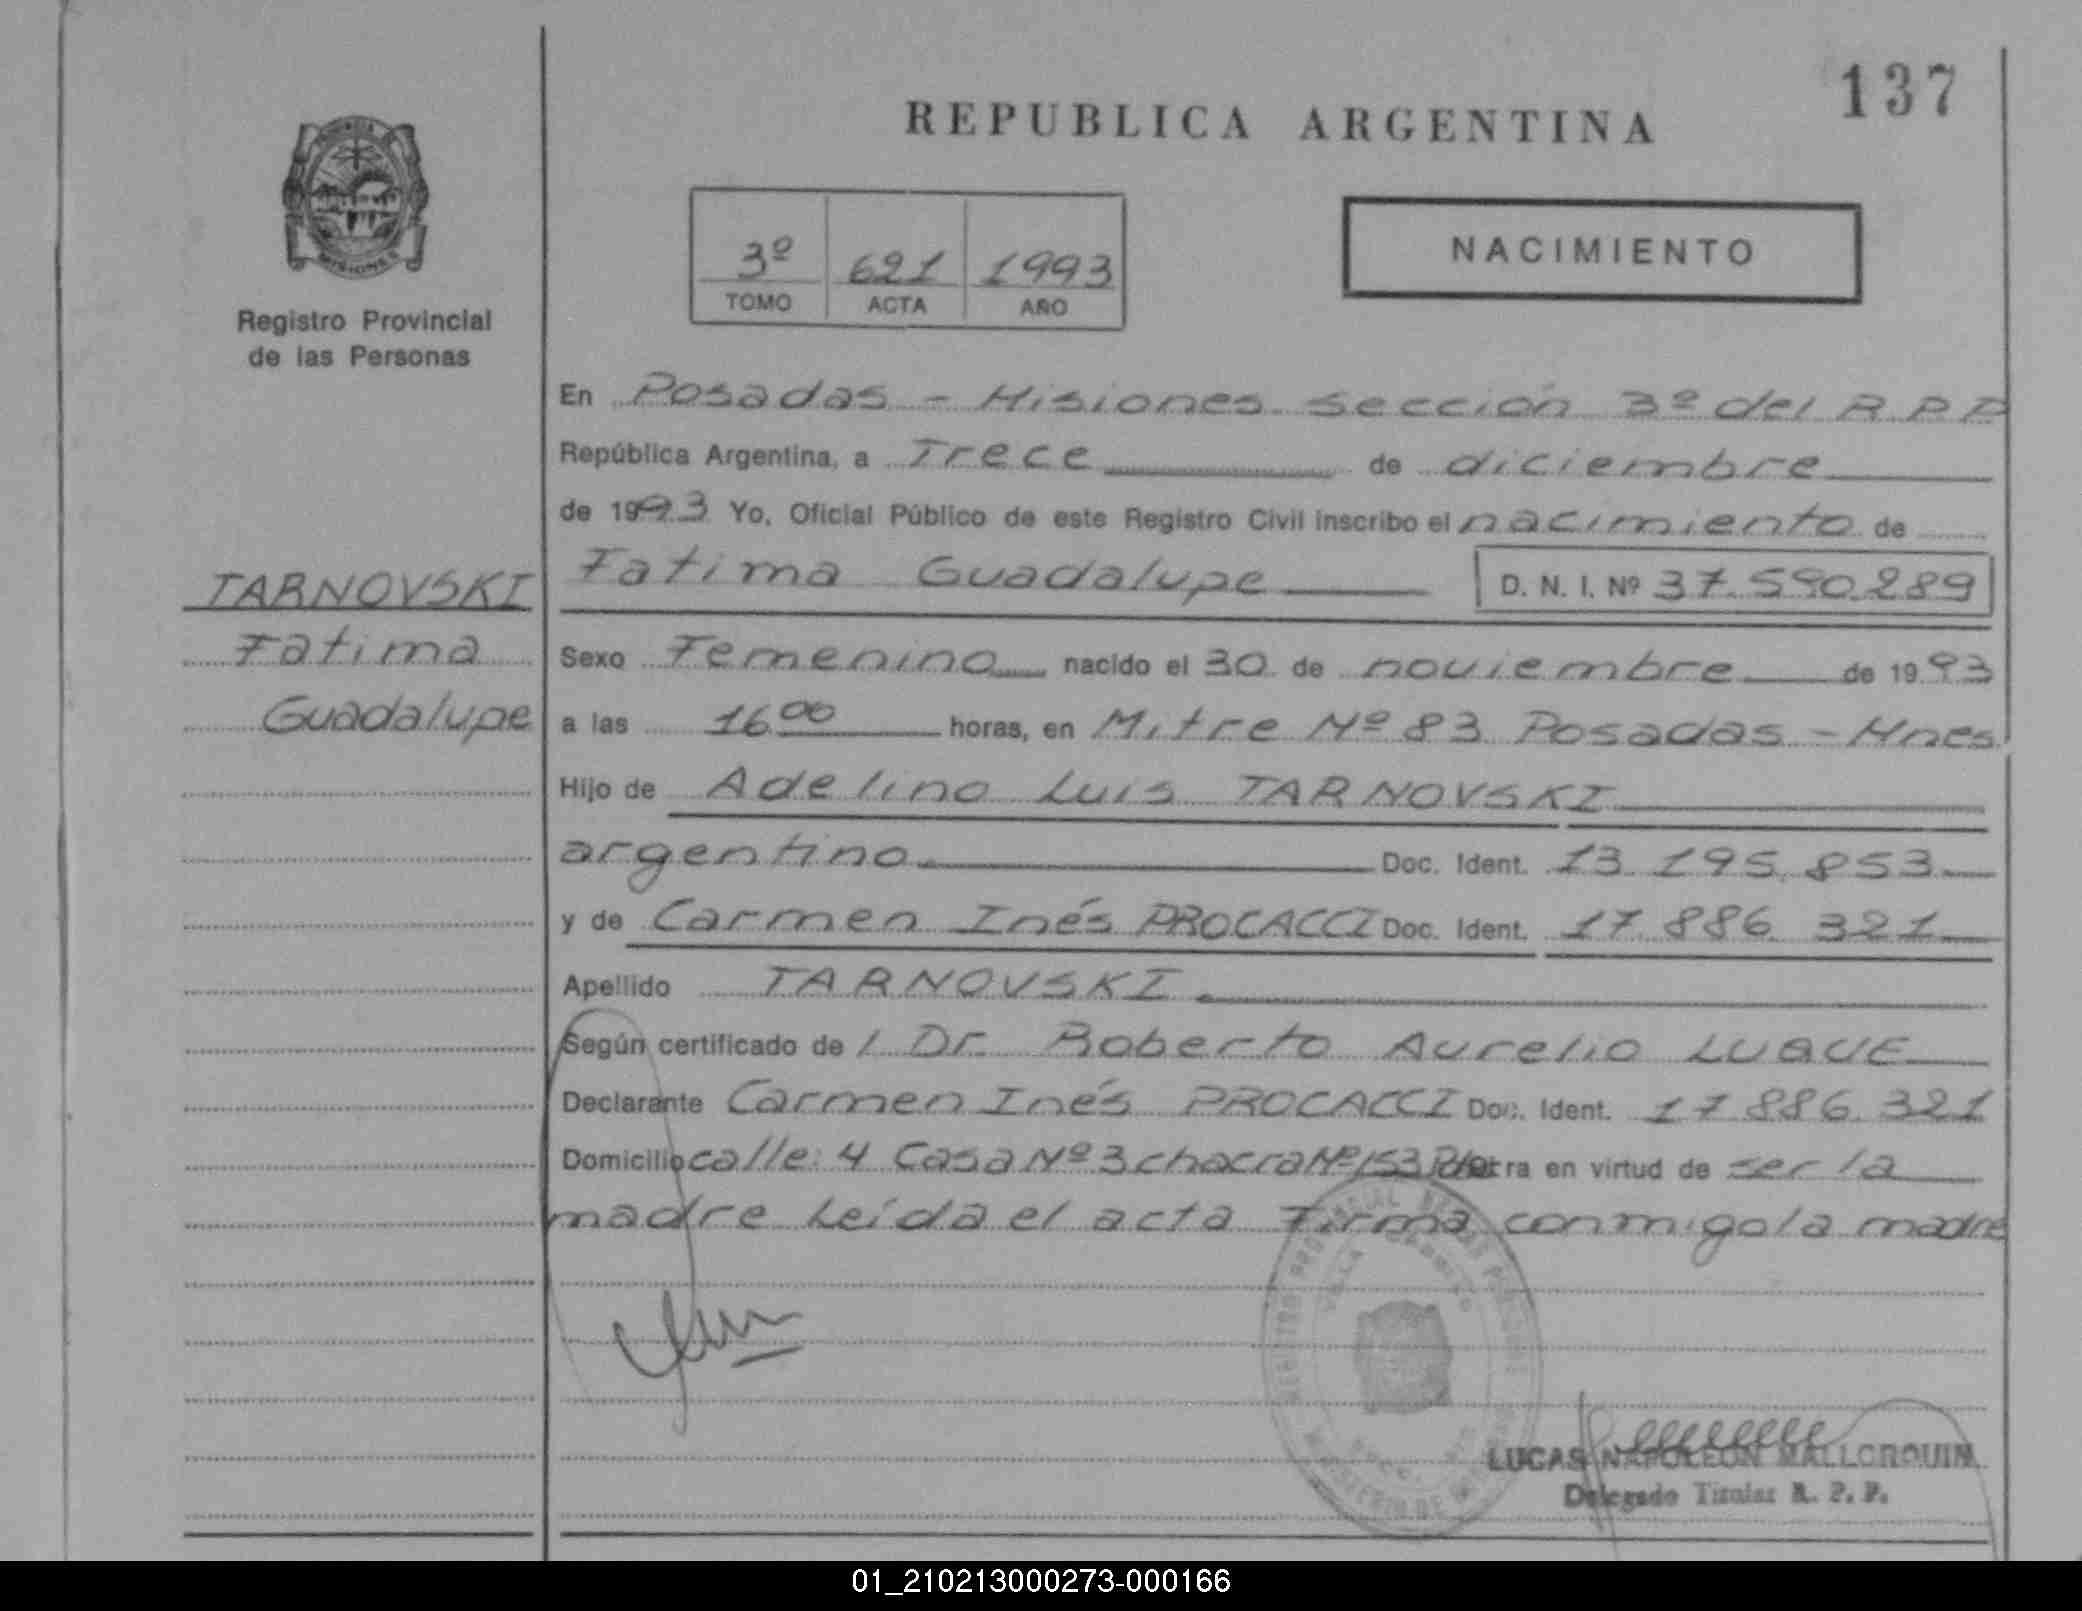 137
REPUBLICA ARGENTINA
MISIONES
3º 621 1993
TOMO ACTA AÑO
NACIMIENTO
Registro Provincial
de las Personas
En Posadas - Misiones Sección 3º del R P P
República Argentina, a Trece de diciembre
de 1993 Yo, Oficial Público de este Registro Civil inscribo el nacimiento de
TARNOVSKI
Fatima
Guadalupe
Fatima Guadalupe D. N. I. Nº 37.590.289
Sexo Femenino nacido el 30 de noviembre de 1993
a las 16 00 horas, en Mitre Nº 83 Posadas - Mnes
Hijo de Adelino Luis TARNOVSKI
argentino Doc. Ident. 13.195.853
y de Carmen Inés PROCACCI Doc. Ident. 17.886.321
Apellido TARNOVSKI
Según certificado de l Dr. Roberto Aurelio LUQUE
Declarante Carmen Inés PROCACCI Doc. Ident. 17 886.321
Domicilio calle: 4 Casa Nº 3 chacra Nº 153 ra en virtud de ser la
madre Leída el acta Firma conmigo la madre
LUCAS NAPOLEON MALLORQUIN
Delegado Titular R. P. P.
01_210213000273-000166